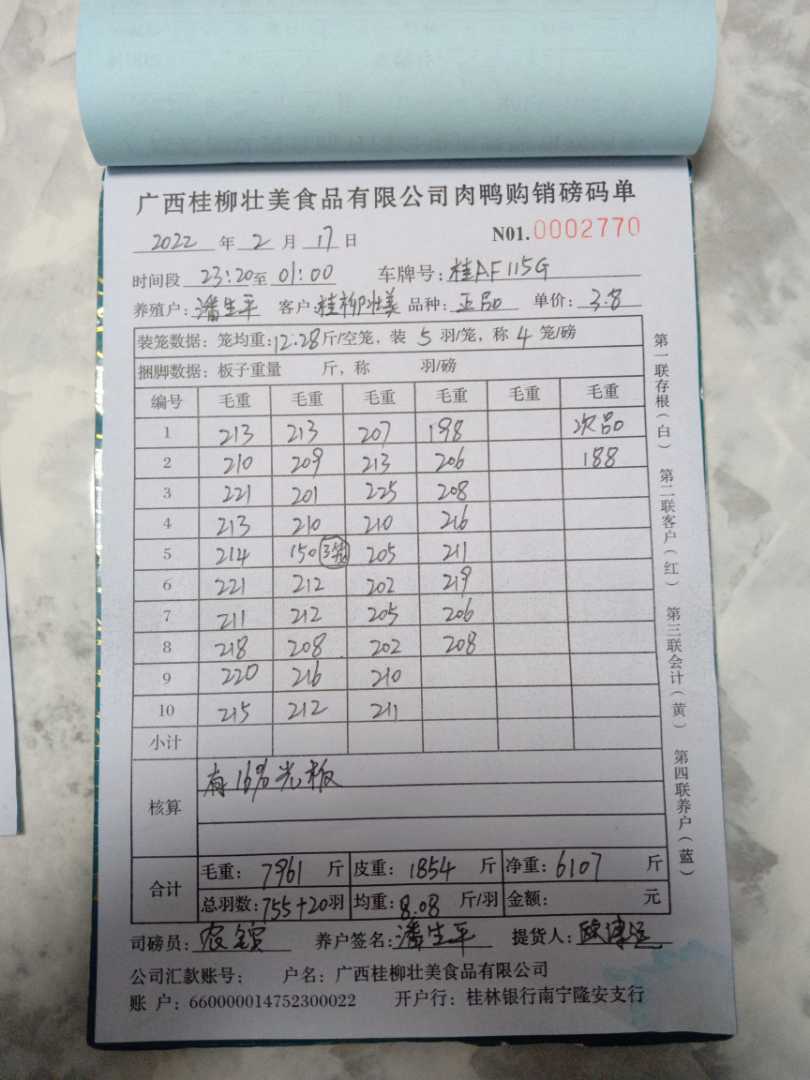 广西桂柳壮美食品有限公司肉鸭购销磅码单
2022 年 2 月 17 日 N01.0002770
时间段 23:20 至 01:00 车牌号: 桂AF115G
养殖户: 潘生平 客户: 桂柳壮美 品种: 正品 单价: 3.8
装笼数据: 笼均重: 12.28 斤/空笼, 装 5 羽/笼, 称 4 笼/磅
捆脚数据: 板子重量 斤, 称 羽/磅
编号 毛重 毛重 毛重 毛重 毛重 毛重
1 213 213 207 198 次品
2 210 209 213 206 188
3 221 201 225 208
4 213 210 210 216
5 214 150 3笼 205 211
6 221 212 202 219
7 211 212 205 206
8 218 208 202 208
9 220 216 210
10 215 212 211
小计
核算 有16%光板
合计 毛重: 7961 斤 皮重: 1854 斤 净重: 6107 斤
总羽数: 755+20 羽 均重: 8.08 斤/羽 金额: 元
司磅员: 养户签名: 潘生平 提货人:
公司汇款账号: 户名: 广西桂柳壮美食品有限公司
账 户: 660000014752300022 开户行: 桂林银行南宁隆安支行
第一联存根(白) 第二联客户(红) 第三联会计(黄) 第四联养户(蓝)